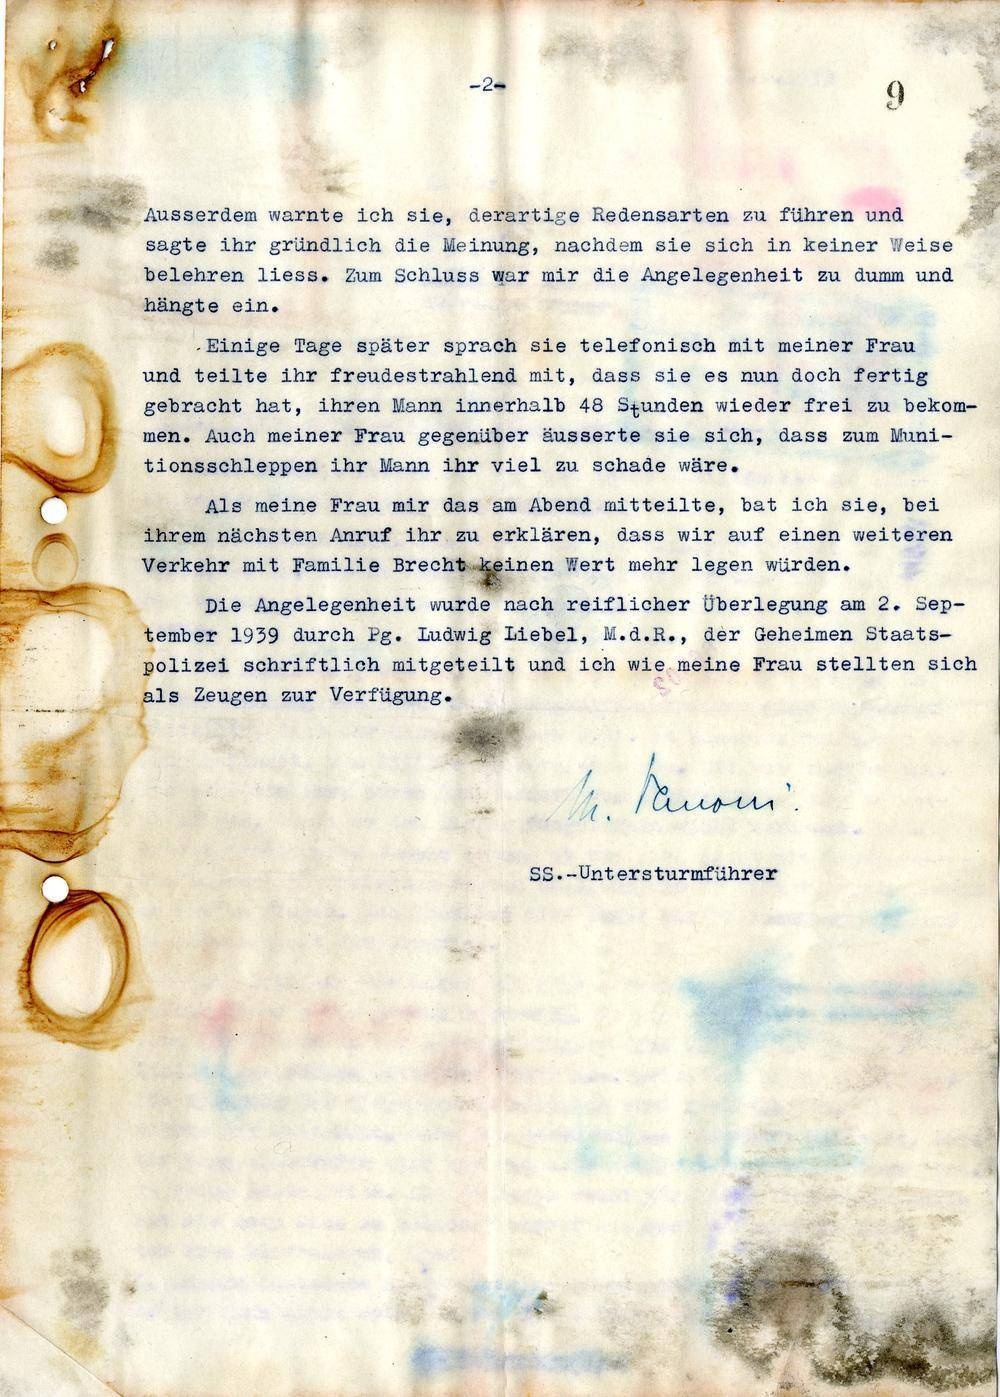 -2-
9
Ausserdem warnte ich sie, derartige Redensarten zu führen und
sagte ihr gründlich die Meinung, nachdem sie sich in keiner Weise
belehren liess. Zum Schluss war mir die Angelegenheit zu dumm und
hängte ein.
Einige Tage später sprach sie telefonisch mit meiner Frau
und teilte ihr freudestrahlend mit, dass sie es nun doch fertig
gebracht hat, ihren Mann innerhalb 48 Stunden wieder frei zu bekom-
men. Auch meiner Frau gegenüber äusserte sie sich, dass zum Muni-
tionsschleppen ihr Mann ihr viel zu schade wäre.
Als meine Frau mir das am Abend mitteilte, bat ich sie, bei
ihrem nächsten Anruf ihr zu erklären, dass wir auf einen weiteren
Verkehr mit Familie Brecht keinen Wert mehr legen würden.
Die Angelegenheit wurde nach reiflicher Überlegung am 2. Sep-
tember 1939 durch Pg. Ludwig Liebel, M.d.R., der Geheimen Staats-
polizei schriftlich mitgeteilt und ich wie meine Frau stellten sich
als Zeugen zur Verfügung.
SS.-Untersturmführer